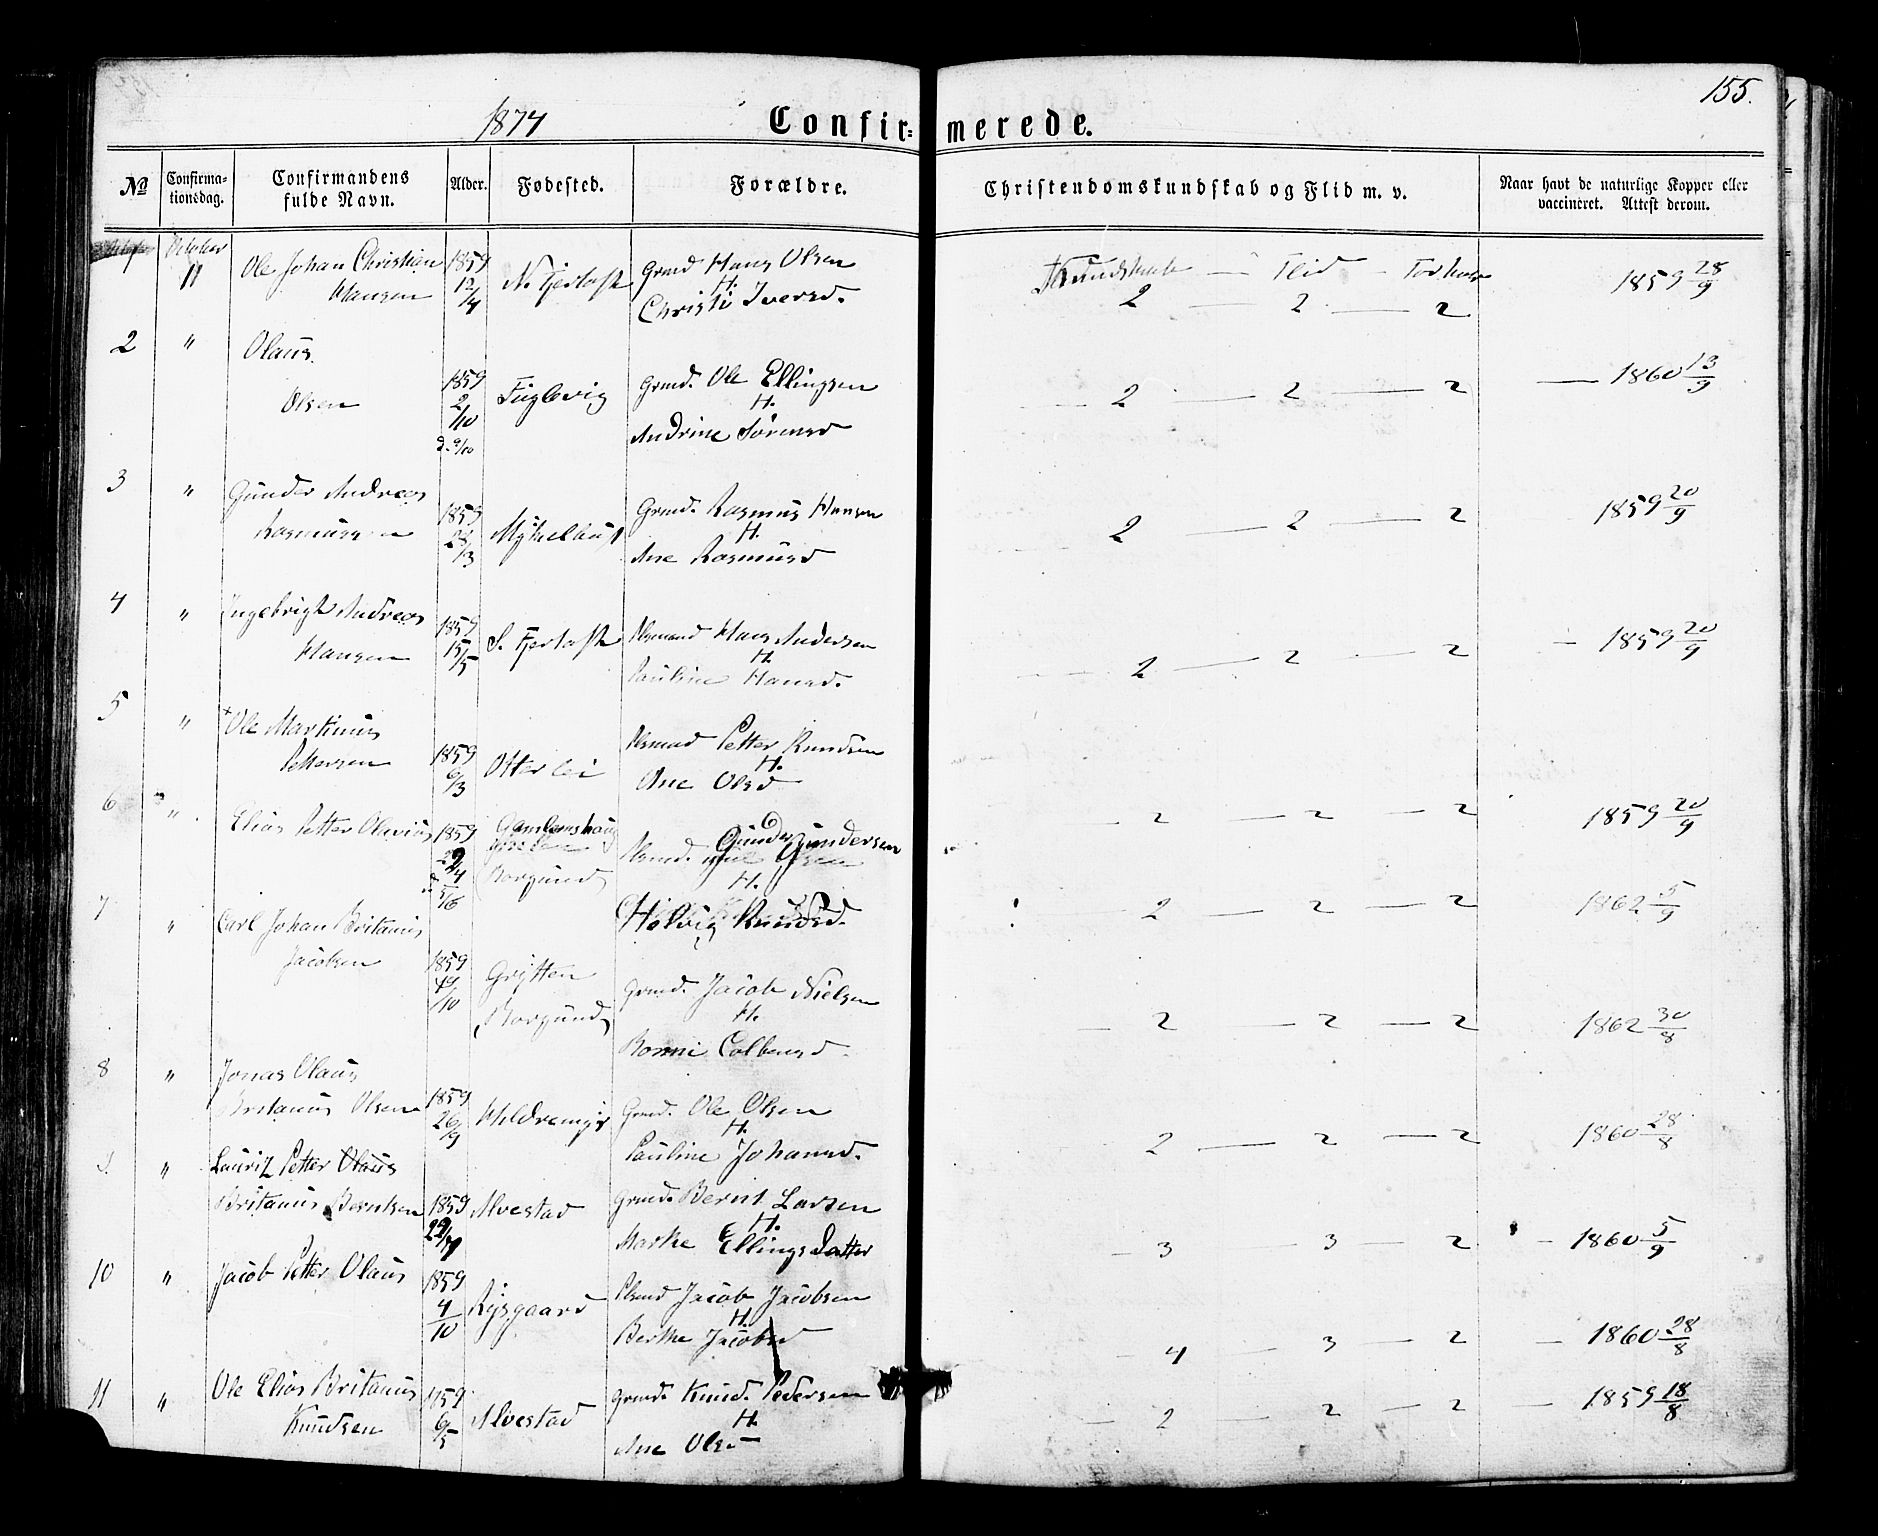 155.
1874
Confir= merede.
No
Confirma-
tionsdag.
Confirmandens
fulde Navn.
Alder.
Fødested.
Forældre.
Christendomskundskab og Flid m. v.
Naar havt de naturlige Kopper eller
vaccineret. Attest derom.
1 October 11 Ole Johan Christian 1859 N. Fjertoft Grmd Hans Olsen Kundskab — Flid — Forhold 1859 28/9
Hansen 12/4 H.
Christi Iversd. 2 — 2 — 2
2 " Olaus
Olsen 1859 2/10 Fuglevig Grmd. Ole Ellingsen 2 — 2 — 2 — 1860 13/9
H.
d. 9/10 Andrine Sørensd
3 " Gunder Andreas
Rasmussen 1859 28/3 Myklebust Grmd. Rasmus Hansen 2 — 2 — 2 1859 20/9
H.
Ane Rasmusd
4 " Ingebrigt Andreas
Hansen 1859 15/5 S. Fjertoft Hans Andersen 2 — 2 — 2 — 1859 20/9
H.
Pauline Hansd.
5 " Ole Martinus
Pettersen 1859 6/3 Otterlei Petter Knudsen — 2 — 2 — 2 1859 20/9
H.
Ane Olsd
6 " Elias Petter Olavius 1859 29/4 Gamlemshaug Gunder Gundersen 2 — 2 — 2 1862 5/9
Borgund H.
Knudsd.
7 " Carl Johan Britanius
Jacobsen 1859 Grytten Grmd. Jacob Nielsen — 2 — 2 — 2 1862 30/8
/10 Borgund H.
Colbensd.
8 " Jonas Olaus
Britanius Olsen 1859 26/9 Hildremyr Grmd. Ole Olsen 2 — 2 — 2 1860 28/8
H.
Pauline Johansd.
9. " Lauriz Petter Olaus
Britanius Berntsen 1859 Alvestad Grmd. Bernt Larsen — 3 — 3 — 2 — 1860 5/9
H.
Marthe Ellings Datter
10 " Jacob Petter Olaus 1859 4/10 Rysgaard Jacob Jacobsen — 4 — 3 — 2 — 1860 28/8
H.
Berthe Jacobsd
11 " Ole Elias Britanius 1859 6/5 Alvestad Grmd. Knud Pedersen — 2 — 2 — 2 — 1859 18/8
Knudsen H.
Ane Olsd